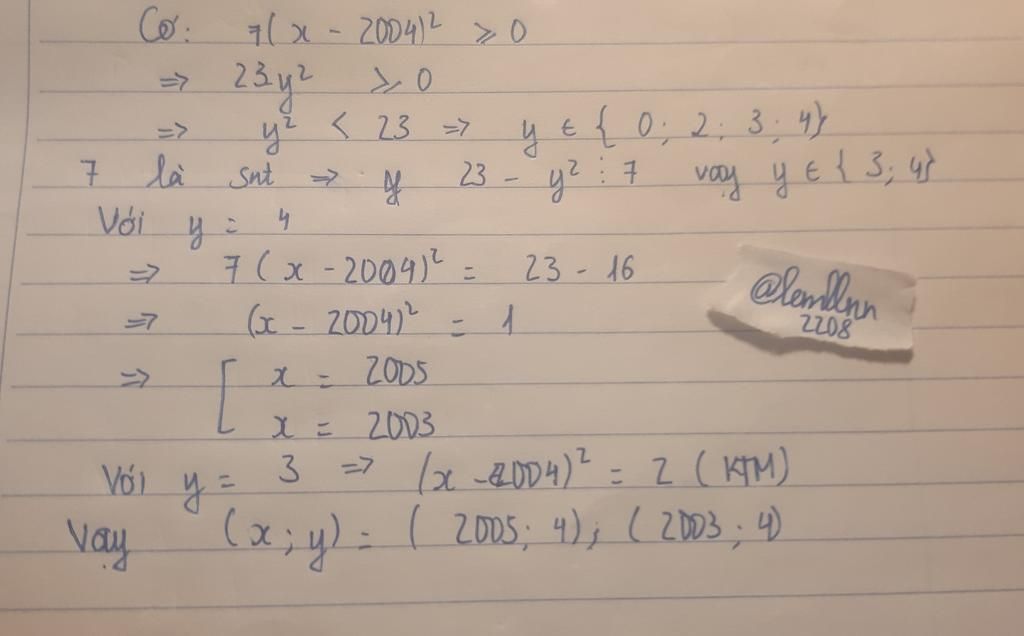 Có: 7(x - 2004)² ≥ 0
⇒ 23.y² ≥ 0
⇒ y² < 23 ⇒ y ∈ { 0; 2; 3; 4}
7 là snt ⇒ y 23 - y² ⋮ 7 vay y ∈ { 3; 4}
Với y = 4
⇒ 7 (x - 2004)² = 23 - 16
⇒ (x - 2004)² = 1
⇒ [ x = 2005
x = 2003
Với y = 3 ⇒ (x - 2004)² = 2 (KTM)
Vạy (x; y) = ( 2005; 4); ( 2003; 4)
@lemllnn
2208